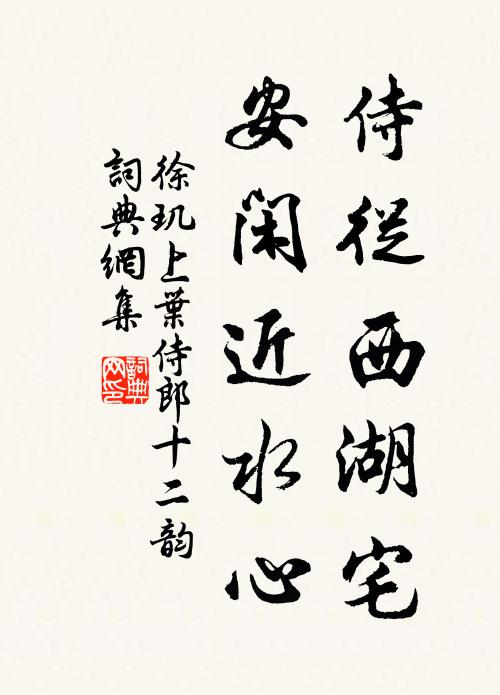 侍從西湖宅
安閑近水心
徐玑上葉侍郎十二韵
詞典網集
詞典网印